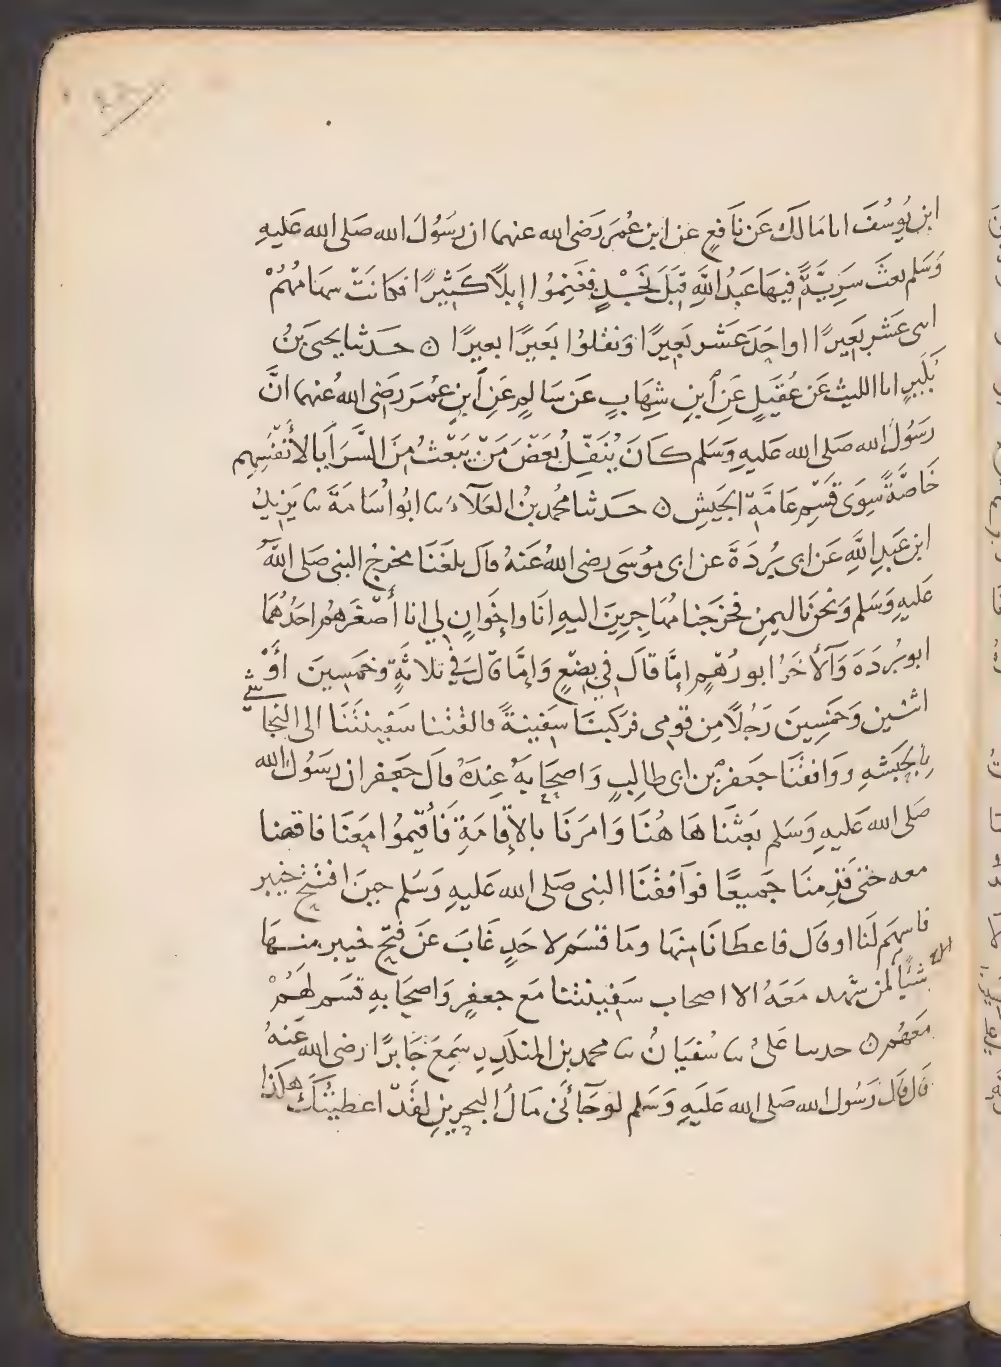 ابن يُوسُفَ انا مَالَك عَن نَافعٍ عن ابن عُمَرَ رَضى الله عنهما ان رسَوُلَ الله صَلى الله عَليهِ
وَسَلم بعثَ سَرِيَّةً فيهَا عَبدُ اللَّهِ قبَلَ نَجْدٍ فغَنِمُوا إبلاً كَثيرًا فكانَتْ سهَامهُمْ
اسى عَشر بَعيرًا او احَدَ عَشر بَعيرًا وَنفلوُا بَعيرًا بعيرًا ن حَدثنا يحيىَ بنُ
بُكَيرٍ انا الليث عَن عُقَيلٍ عَنِ ابنِ شِهَابٍ عَن سَالمٍ عَنِ ابنِ عُمَرَ رَضى اللهُ عنهما انَّ
رسَوُلَ الله صَلى الله عَليهِ وَسَلم كانَ يُنَفّلُ بَعْضَ مَنْ يَبْعَثُ مِنَ السَّرَايَا لأنفُسِهِم
خَاصَّةً سِوَى قَسْمِ عَامَّةِ الجَيشِ ن حَدثنا محمد بنُ العَلاَء ثنا ابوُ اسَامَةَ ثنا يَزيدُ
ابن عَبدِ اللَّهِ عَن ابى بُردَةَ عن ابى موُسَى رضى اللهُ عَنهُ قالَ بلغَنَا مخرَج النبى صَلى اللهُ
عَليهِ وَسَلم وَنحنُ باليمنِ فخرَجَنا مُهَاجِرِينَ اليهِ انَا واخَوانِ لي انا أصْغَرهُم احَدُهُمَا
ابوبُردَةَ وَالآخَرُ ابورُهْمٍ إمَّا قالَ فى بضْعٍ وَإمَّا قالَ فى ثلاثةٍ وخمَسينَ اوْ
اثنين وَخمَسِينَ رَجُلاً مِن قومى فركبنَا سَفينةً فالقتنا سَفينتُنَا الى النجاشي
بالحبَشهِ ووَافقنَا جَعفر بن ابى طالبٍ وَاصحَابهُ عِندَهُ قالَ جَعفر ان رسَوُلَ الله
صَلى الله عَليهِ وَسَلم بَعثنَا هَا هُنَا وَامرَنَا بالإقامَةِ فَأقيموُا مَعَنَا فاقمنا
معه حَتى قَدِمنَا جَميعًا فوَافقْنَا النبى صَلى الله عَليهِ وَسَلم حينَ افتتح خيبر
فاسهَم لَنَا او قال فاعطَانَا منهَا ومَا قسَم لاحَدٍ غَابَ عَنْ فتْح خيبر منهَا
شيًا لمن شهد مَعَهُ الا اصحاب سَفينتنا مَع جعفرٍ وَاصحَابهِ قسَم لهَمُ
مَعَهُم ن حدثنا عَلىُ ثنا سُفيَانُ ثنا محمد بن المنكدِرِ سَمِعَ جَابرًا رضى الله عَنهُ
قال قال رَسُول الله صَلى الله عَلَيهِ وَسَلم لو جَآئنى مَالُ البحرينِ لقَدْ اعطيتُكَ هكذا